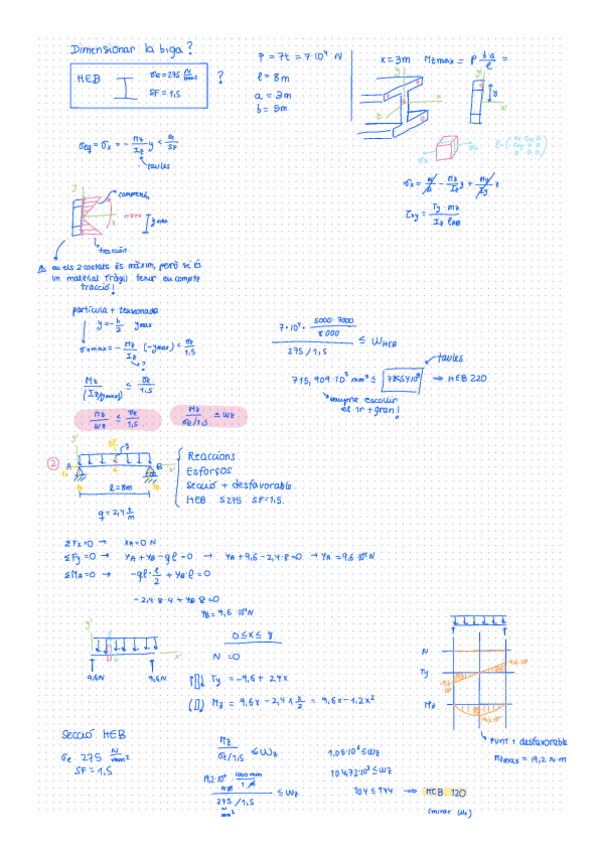 Dimensionar la biga?
HEB
σe = 275 N/mm²
SF = 1,5
?
P = 7t = 7·10⁴ N
l = 8m
a = 3m
b = 5m
x = 3m Mz max = P b·a/l =
σeq = σx = - Mz/Iz y < σe/SF
taules
σx = N/A - Mz/Iz y + My/Iy z
τxy = Ty · mz / Iz ℓAB
compressió
y max
tracció
⚠ en els 2 costats és màxim, però si és
un material fràgil tenir en compte
tracció!
partícula + tensionada
y = - h/2 y max
σx max = - Mz/Iz (-y max) < σe/1,5
?
Mz/(Iz/y max) ≤ σe/1,5
Mz/wz ≤ σe/1,5
Mz/σe/1,5 ≤ wz
7·10⁴ · 5000·3000/8000
275/1,5 ≤ WHEB
taules
715,909·10³ mm³ ≤ ⇒ HEB 220
sempre escollir
el 1r + gran!
2
A B
l = 8m
q = 2,4 t/m
Reaccions
Esforços
Secció + desfavorable
HEB S275 SF=1,5
ΣFx = 0 → xA = 0 N
ΣFy = 0 → yA + yB - ql = 0 → yA + 9,6 - 2,4·8 = 0 → yA = 9,6·10⁴ N
ΣMA = 0 → -ql · l/2 + yB · l = 0
-2,4·8·4 + yB 8 = 0
yB = 9,6 ·10⁴ N
9,6N 9,6N
0 ≤ x ≤ 8
N = 0
Ty = -9,6 + 2,4x
Mz = 9,6x - 2,4x x/2 = 9,6x - 1,2x²
N
Ty
Mz
punt + desfavorable
Mz max = 19,2 N·m
Secció HEB
σe 275 N/mm²
SF = 1,5
Mz/σe/1,5 ≤ wz
19,2·10⁴ · 1000 mm/1 m
275/1,5 ≤ wz
N/mm²
1,05·10⁶ ≤ wz
104 ≤ 144 → HEB 120
(mirar Wz)